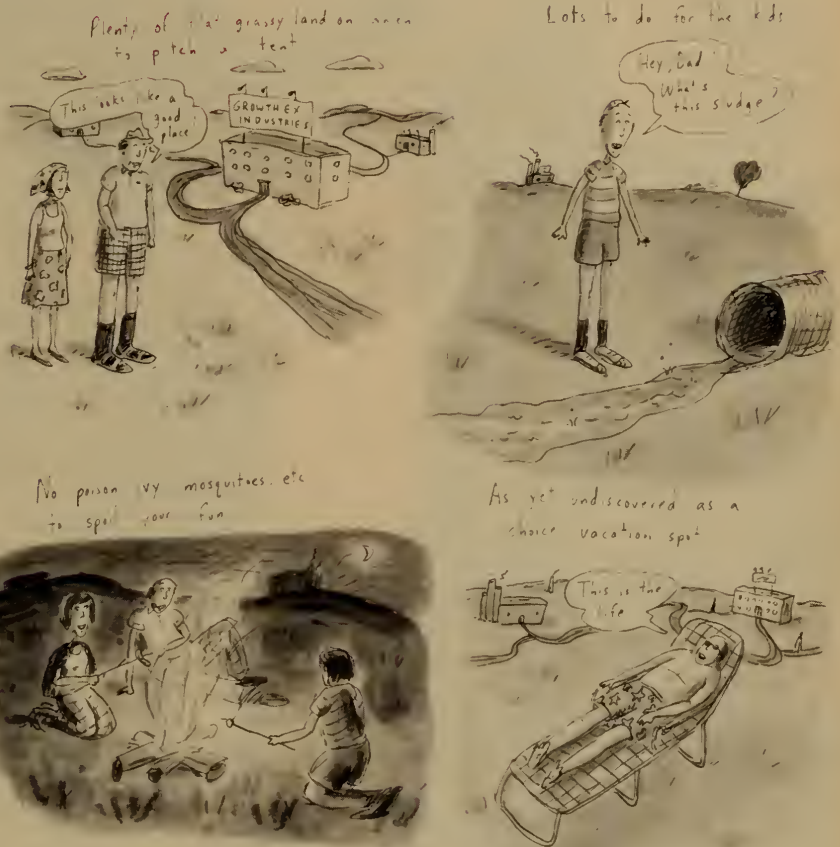 Plenty of flat grassy land on which
to pitch a tent
This looks like a
good
place
GROWTHEX
INDUSTRIES
Lots to do for the kids
Hey, Dad!
What's
this sludge?
No poison ivy mosquitoes, etc
to spoil your fun
As yet undiscovered as a
choice vacation spot
This is the
life